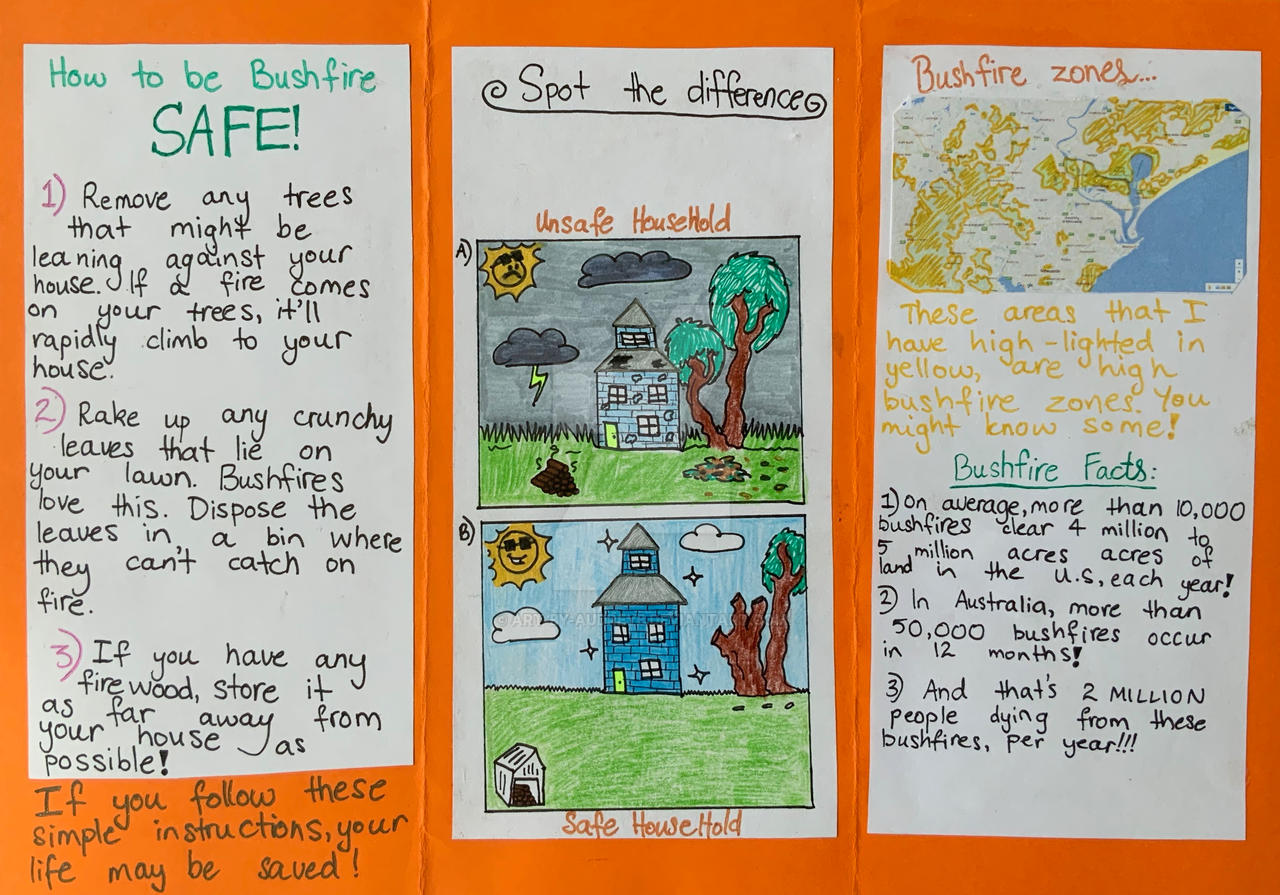 How to be Bushfire
SAFE!
1) Remove any trees
that might be
leaning against your
house. If a fire comes
on your trees, it'll
rapidly climb to your
house.
2) Rake up any crunchy
leaves that lie on
your lawn. Bushfires
love this. Dispose the
leaves in a bin where
they can't catch on
fire.
3) If you have any
firewood, store it
as far away from
your house as
possible!
If you follow these
simple instructions, your
life may be saved!
Spot the difference
Unsafe HouseHold
A)
B)
Safe HouseHold
Bushfire zones...
These areas that I
have high-lighted in
yellow, are high
bushfire zones. You
might know some!
Bushfire Facts:
1) On average, more than 10,000
bushfires clear 4 million to
5 million acres acres of
land in the U.S, each year!
2) In Australia, more than
50,000 bushfires occur
in 12 months!
3) And that's 2 MILLION
people dying from these
bushfires, per year!!!